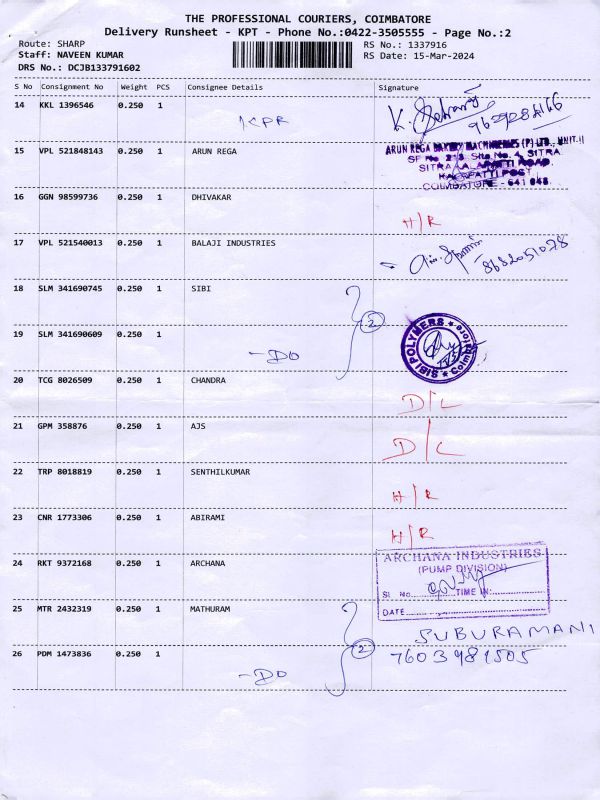 THE PROFESSIONAL COURIERS, COIMBATORE
Delivery Runsheet - KPT - Phone No.:0422-3505555 - Page No.:2
Route: SHARP RS No.: 1337916
Staff: NAVEEN KUMAR RS Date: 15-Mar-2024
DRS No.: DCJB133791602
S No Consignment No Weight PCS Consignee Details Signature
14 KKL 1396546 0.250 1 KPR K.
15 VPL 521848143 0.250 1 ARUN REGA
ARUN REGA BAKERY MACHINERIES (P) LTD., UNIT-II
SF No. Site No. 4, SITRA
ROAD,
POST
COIMBATORE - 641 048.
16 GGN 98599736 0.250 1 DHIVAKAR H/R
17 VPL 521540013 0.250 1 BALAJI INDUSTRIES 8682051078
18 SLM 341690745 0.250 1 SIBI
2
19 SLM 341690609 0.250 1 -DO
SIBI POLYMERS ★ Coimbatore ★
20 TCG 8026509 0.250 1 CHANDRA D/L
21 GPM 358876 0.250 1 AJS D/L
22 TRP 8018819 0.250 1 SENTHILKUMAR H/R
23 CNR 1773306 0.250 1 ABIRAMI H/R
24 RKT 9372168 0.250 1 ARCHANA
ARCHANA INDUSTRIES
(PUMP DIVISION)
Sl No. TIME IN:
DATE
25 MTR 2432319 0.250 1 MATHURAM
SUBURAMANI
2
26 PDM 1473836 0.250 1 -DO 7603981505